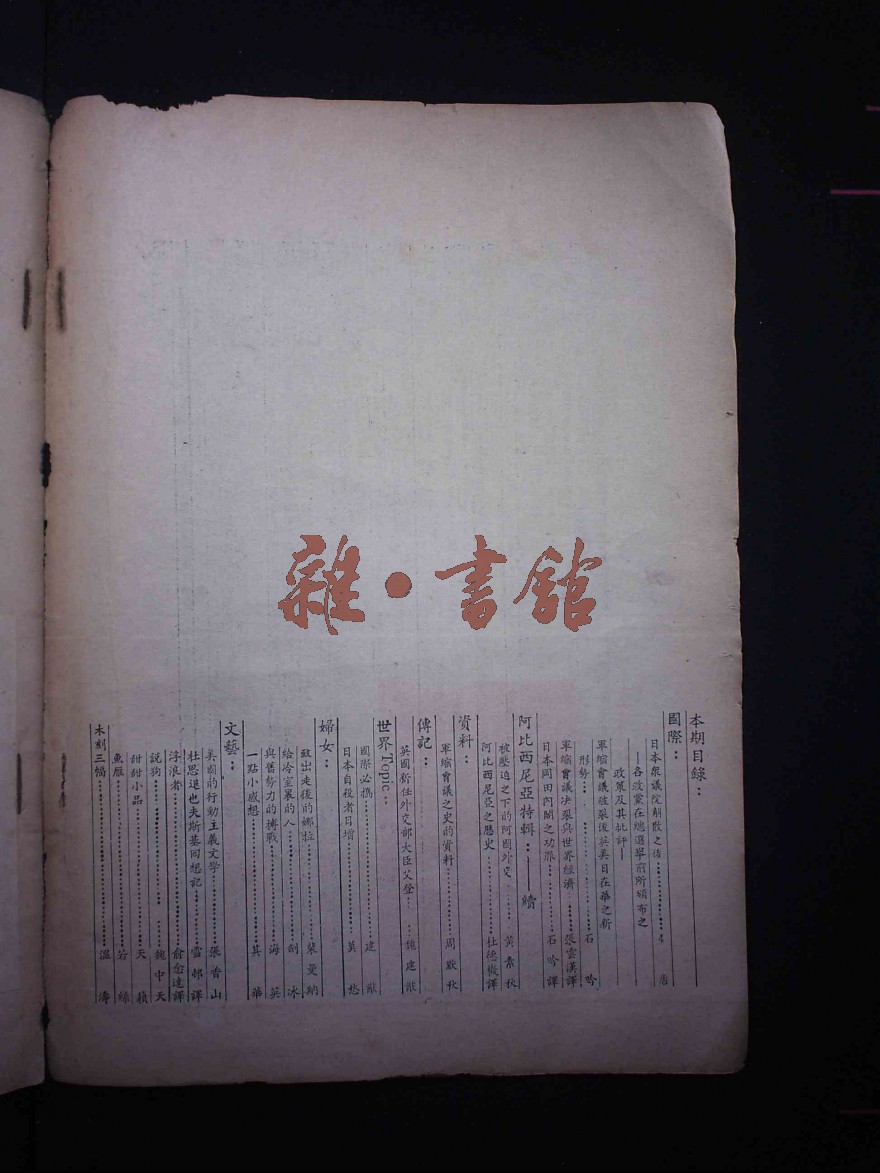 本期目錄：
國際：
日本衆議院解散之後
——各政黨在總選舉前所頒布之
政策及其批評——
軍縮會議破裂後英美日在華之新
形勢 石吟
軍縮會議决裂與世界經濟 張雲漢譯
日本岡田內閣之功罪 石吟譯
阿比西尼亞特輯：——續
被壓迫之下的阿國外交 黃素秋
阿比西尼亞之歷史 杜德機譯
資料：
軍縮會議之史的資料 周默秋
傳記：
英國新任外交部大臣艾登 魏建猷
世界Topic：
國際必携 建猷
日本自殺者日增 莫愁
婦女：
致出走後的娜拉 裴曼納
給冷室裏的人 劍冰
與舊勢力的搏戰 海英
一點小感想 其華
文藝：
美國的行動主義文學 張香山
杜思退也夫斯基回想記 雪邨譯
浮浪者 俞念遠譯
說狗 魏中天
甜甜小品 天蘋
魚雁 若絲
木刻三幅 溫濤
雜•書館